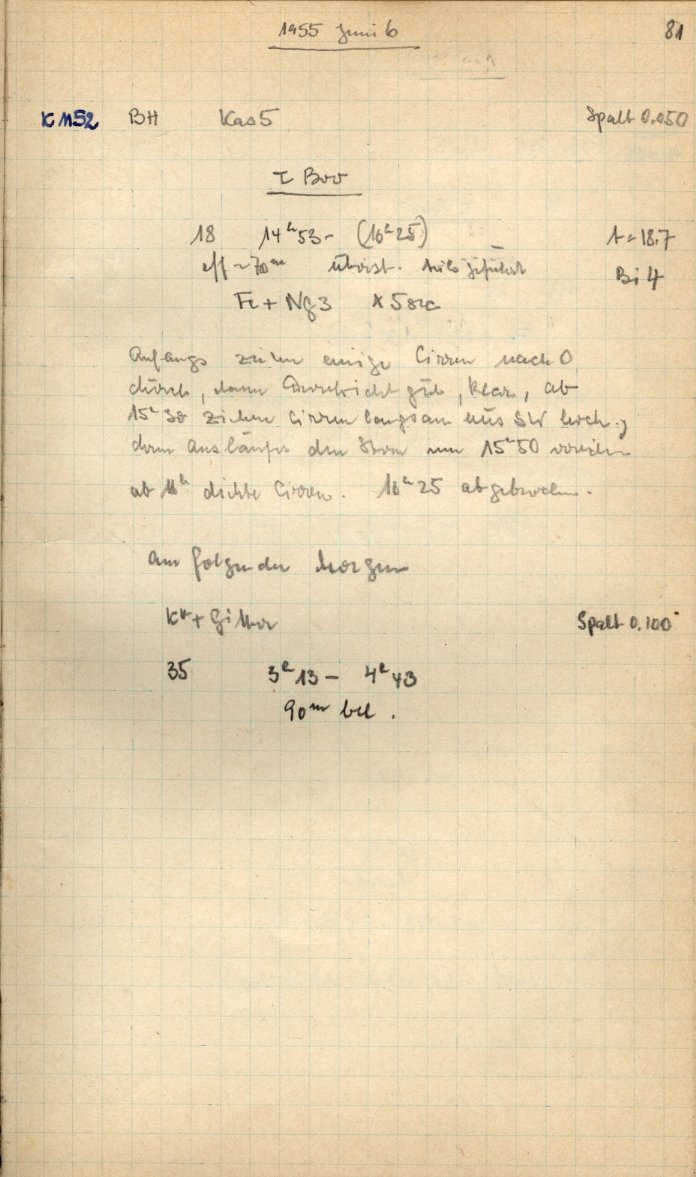 1955 Juni 6 81
K 1152 BH Kas 5 Spalt 0.050
τ Boo
18 14ʰ53 – (16ʰ25) t = 18.7
eff ~ 70ᵐ Bi 4
Fe + Ng 3 x 5 sec
Anfangs ziehen einige Cirren nach O
durch, dann Durchsicht gut, klar, ab
15ʰ30 ziehen Cirren langsam aus SW hoch,
deren Ausläufer den Stern um 15ʰ50
ab 16ʰ dichte Cirren. 16ʰ25 abgebrochen.
am folgenden Morgen
+ Gitter Spalt 0.100
35 3ʰ13 – 4ʰ43
90ᵐ bel.